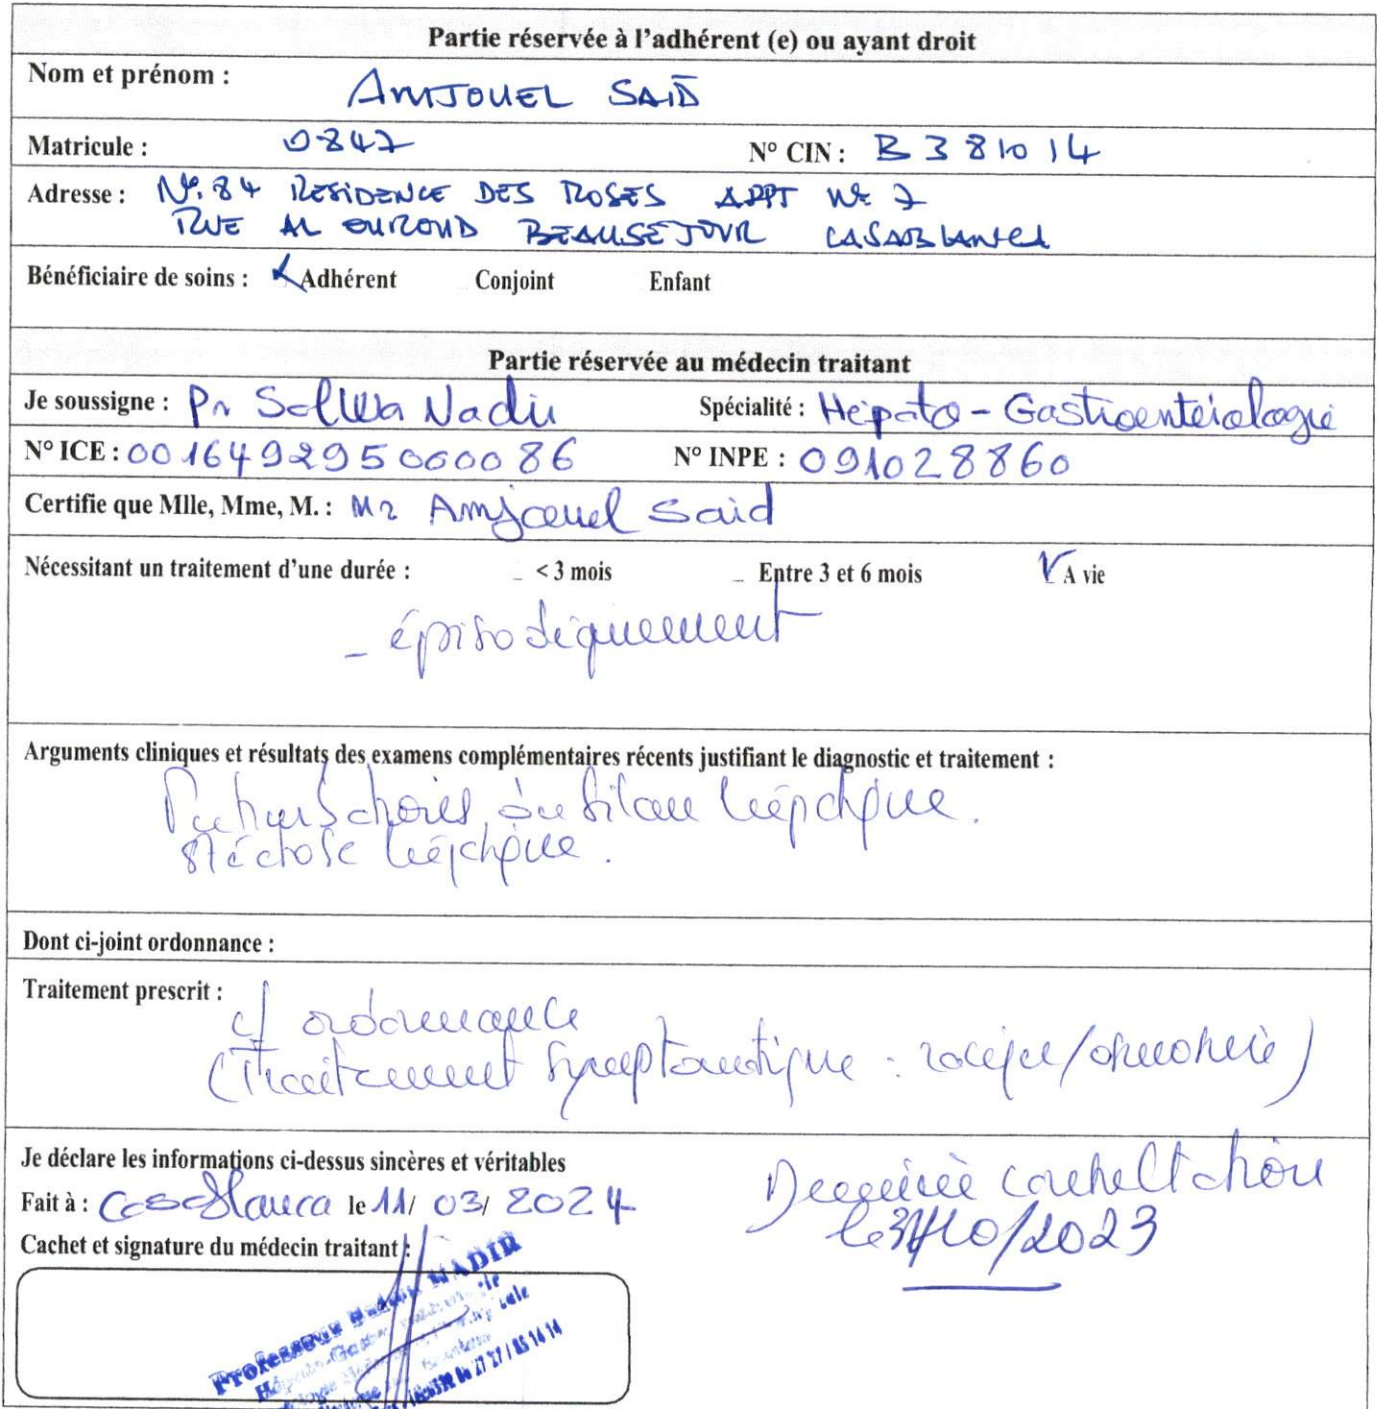 Partie réservée à l'adhérent (e) ou ayant droit
Nom et prénom : AMJOUEL SAID
Matricule : 0847 N° CIN : B 381014
Adresse : N°. 84 RESIDENCE DES ROSES APPT N° 7
RUE AL OUROUD BEAUSEJOUR CASABLANCA
Bénéficiaire de soins : Adhérent Conjoint Enfant
Partie réservée au médecin traitant
Je soussigne : Pr Salwa Nadir Spécialité : Hépato - Gastroentérologie
N° ICE : 001649295000086 N° INPE : 091028860
Certifie que Mlle, Mme, M. : Mr Amjouel Said
Nécessitant un traitement d'une durée : < 3 mois Entre 3 et 6 mois A vie
- épisodiquement
Arguments cliniques et résultats des examens complémentaires récents justifiant le diagnostic et traitement :
Perturbations du bilan hépatique.
Stéatose hépatique.
Dont ci-joint ordonnance :
Traitement prescrit :
cf ordonnance
(Traitement symptomatique : )
Je déclare les informations ci-dessus sincères et véritables
Fait à : Casablanca le 11/ 03/ 2024
Dernière consultation
le 31/10/2023
Cachet et signature du médecin traitant :
Professeur NADIR